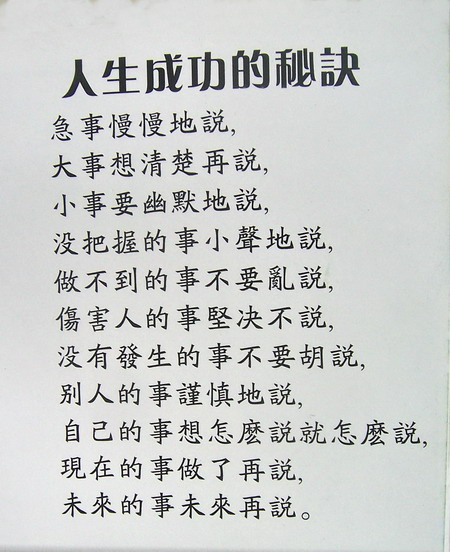 人生成功的秘訣
急事慢慢地説,
大事想清楚再説,
小事要幽默地説,
没把握的事小聲地説,
做不到的事不要亂説,
傷害人的事堅决不説,
没有發生的事不要胡説,
别人的事謹慎地説,
自己的事想怎麽説就怎麽説,
現在的事做了再説,
未來的事未來再説。